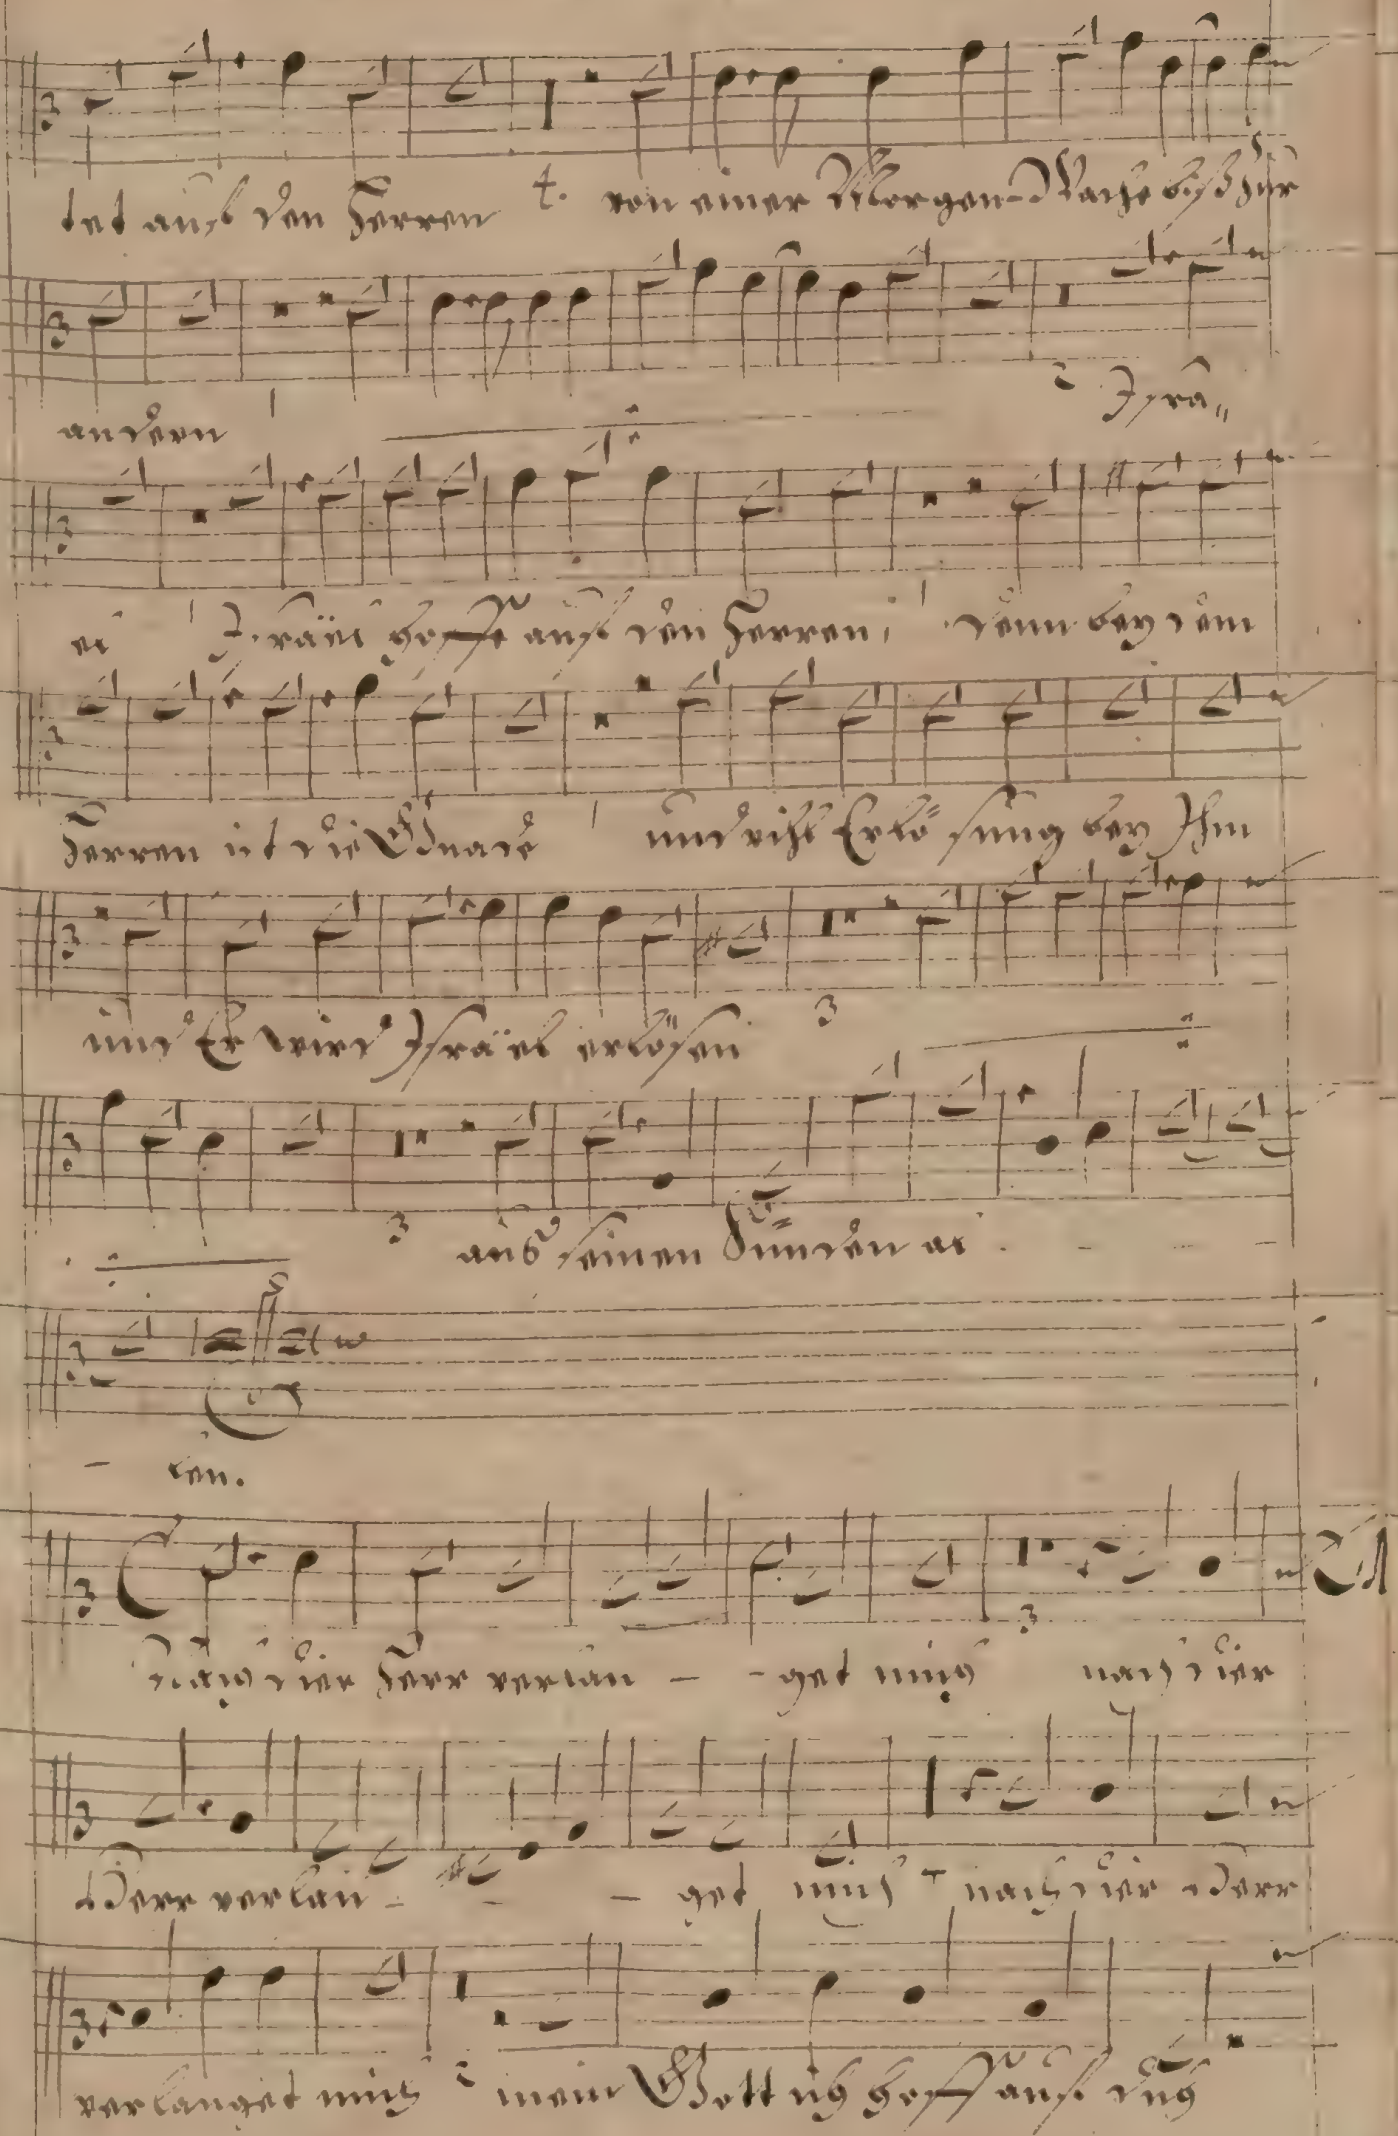 tet auff den Herren 4. von einer Morgen-Wache biß zur
andern Isra„
el Israël hoffe auff den Herren, denn bey dem
Herren ist die Gnade und viel Erlösung bey Ihm
und Er wird Israël erlösen 3
3 auß seinen Sünden al
len.
Nach dier Herr verlan - - get mich 3 nach dier
Herr verlan - - - get mich nach dier Herr
verlanget mich 2 mein Gott ich hoff auff dich